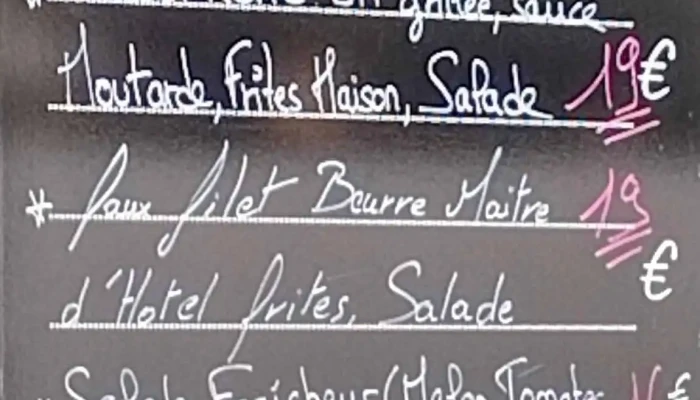 grillée, sauce
Moutarde, Frites Maison, Salade 19€
* faux filet Beurre Maitre 19
€
d'Hotel frites, Salade
Salade Fraicheur (Melon Tomates